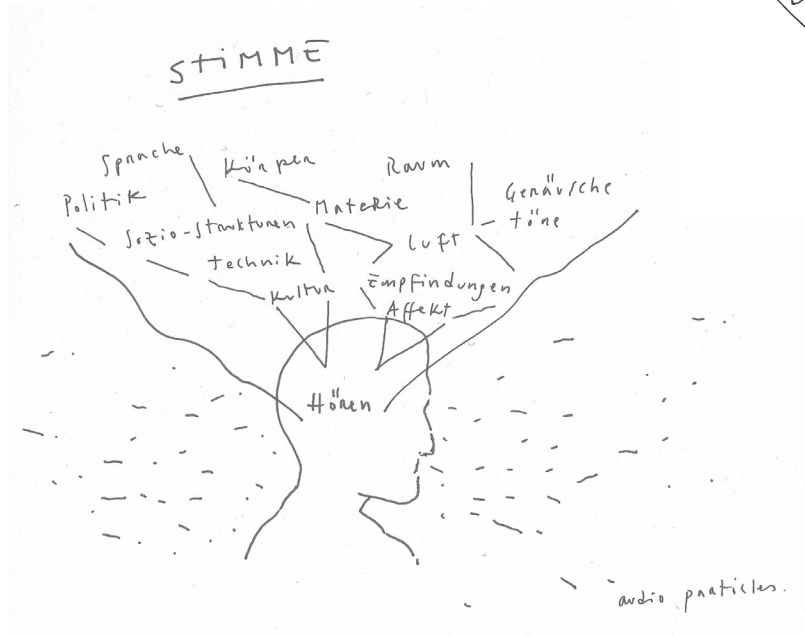 STiMME
Sprache
Körper
Raum
Politik
Materie
Geräusche
töne
Sozio-Strukturen
Luft
Technik
Empfindungen
Kultur
Affekt
Hören
audio particles.